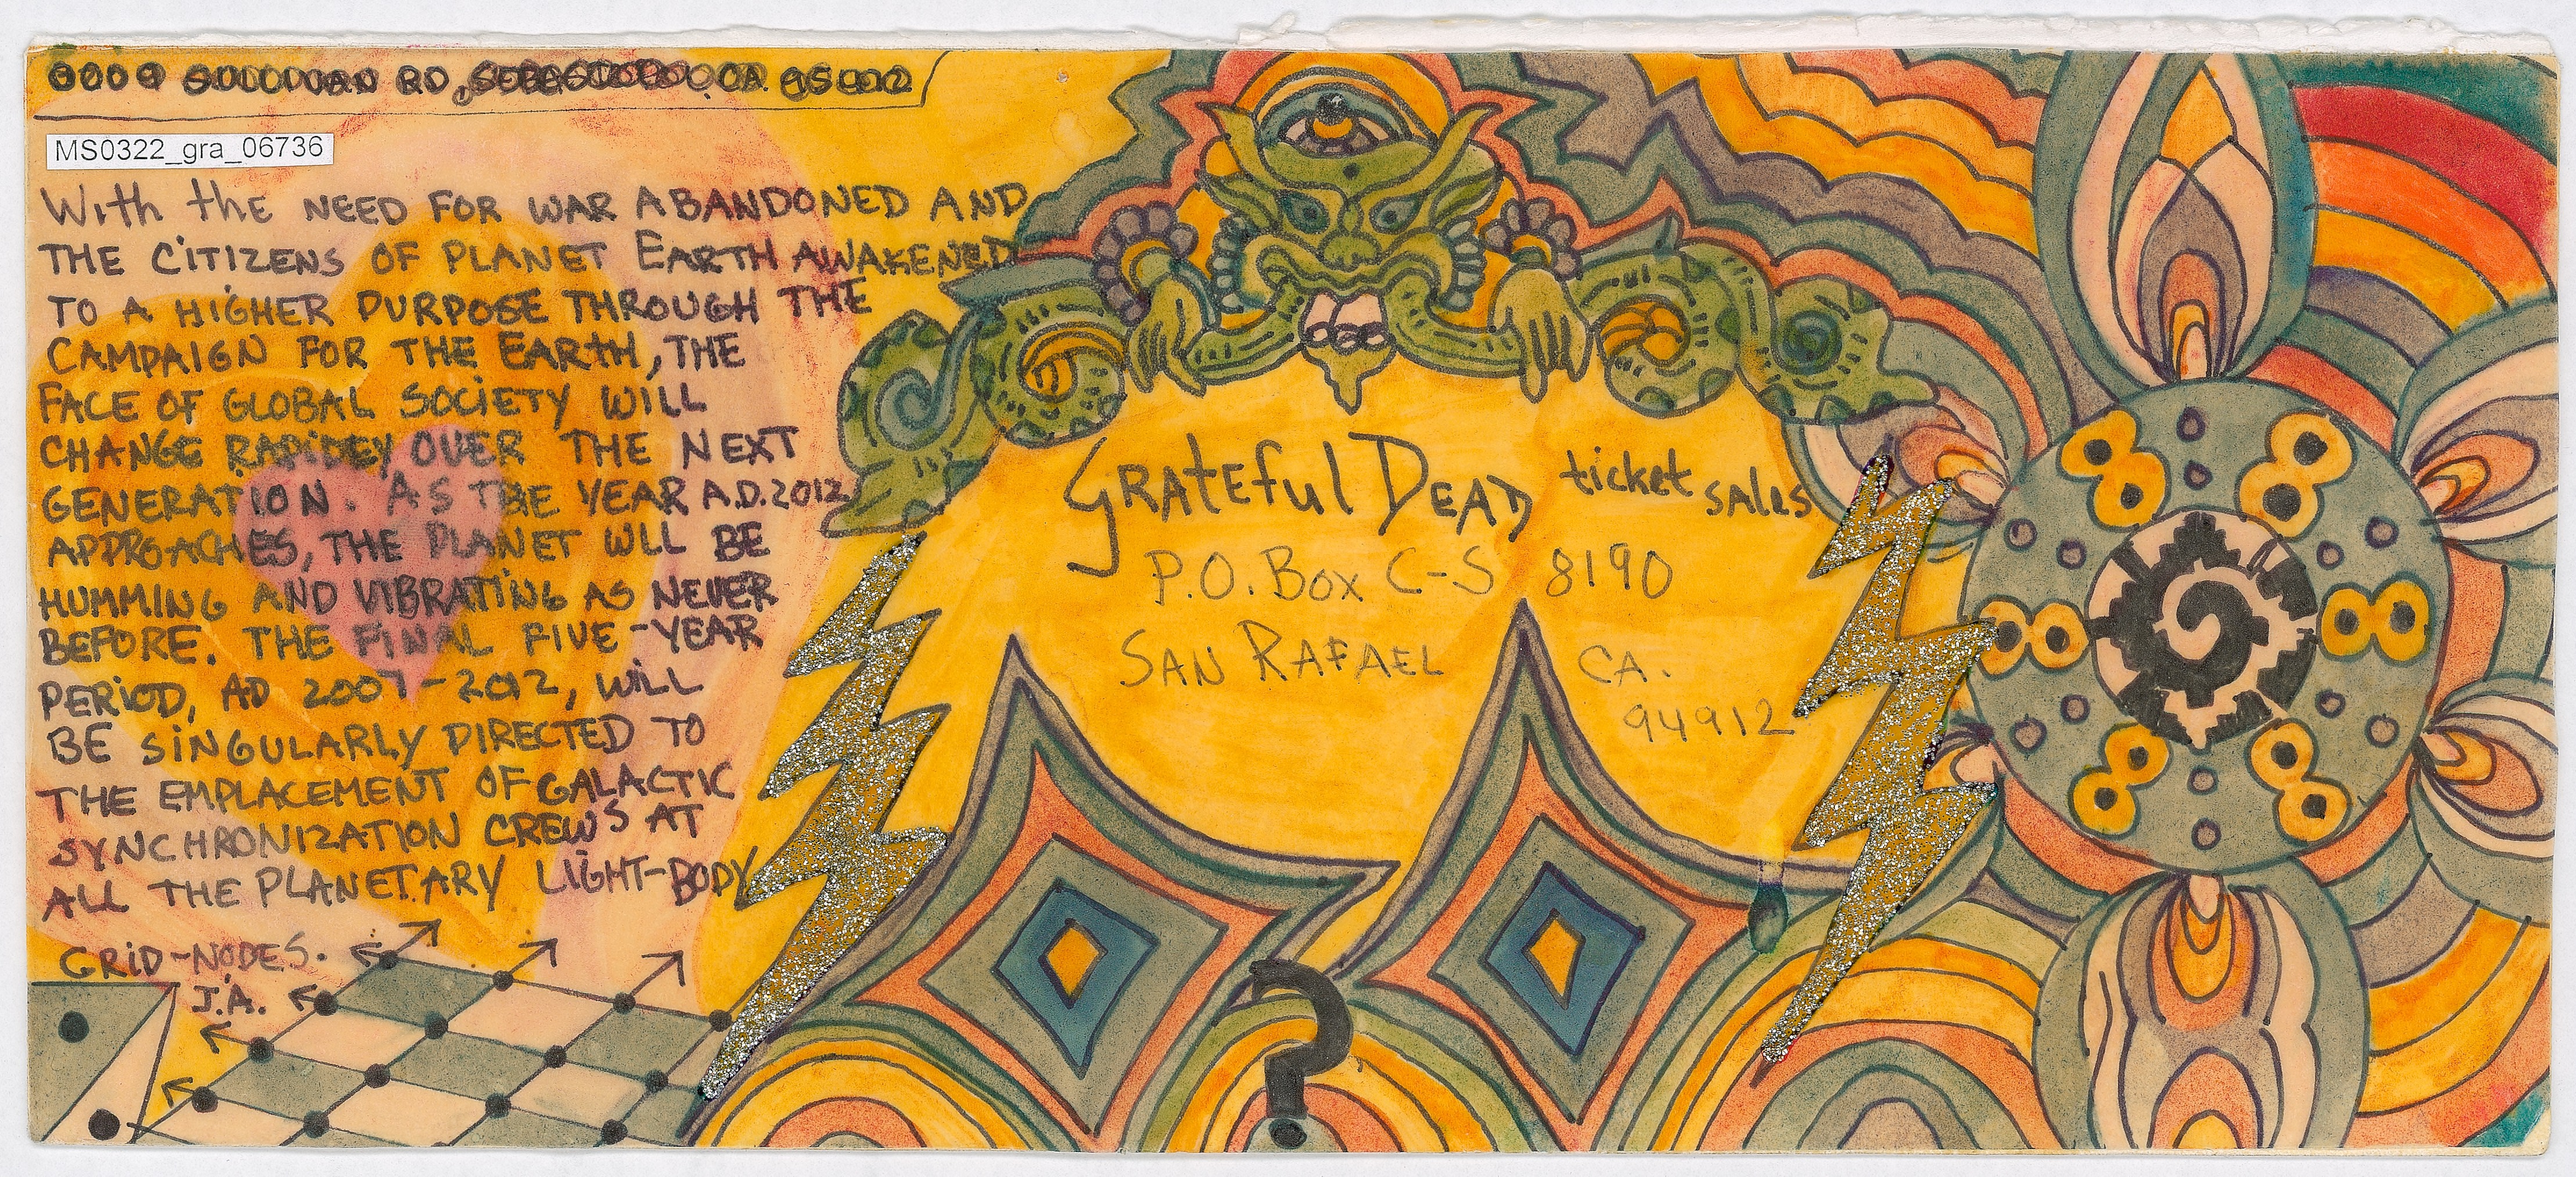 RD, CA.
MS0322_gra_06736
With the NEED FOR WAR ABANDONED AND
THE CiTIZENS OF PLANET EARTH AWAKENED
TO A HiGHER PURPOSE THROUGH THE
CAMPAIGN FOR THE EARtH, THE
FACE OF GLOBAL SOCiETY WILL
CHANGE RAPiDEY OVER THE NEXT
GENERATION. AS THE YEAR A.D.2012
APPROACHES, THE PLANET WLL BE
HUMMING AND VIBRATiNG AS NEVER
BEFORE. THE FINAL FIVE-YEAR
PERiOD, AD 2007-2012, WiLL
BE SiNGULARLY DIRECTED TO
THE EMPLACEMENT OF GALACTIC
SYNCHRONIZATION CREWS AT
ALL THE PLANETARY LIGHT-BODY
GRiD-NODES.
J.A.
GRAtEful DEAD ticket sales
P.O. Box C-S 8190
SAN RAFAEL CA.
94912
?